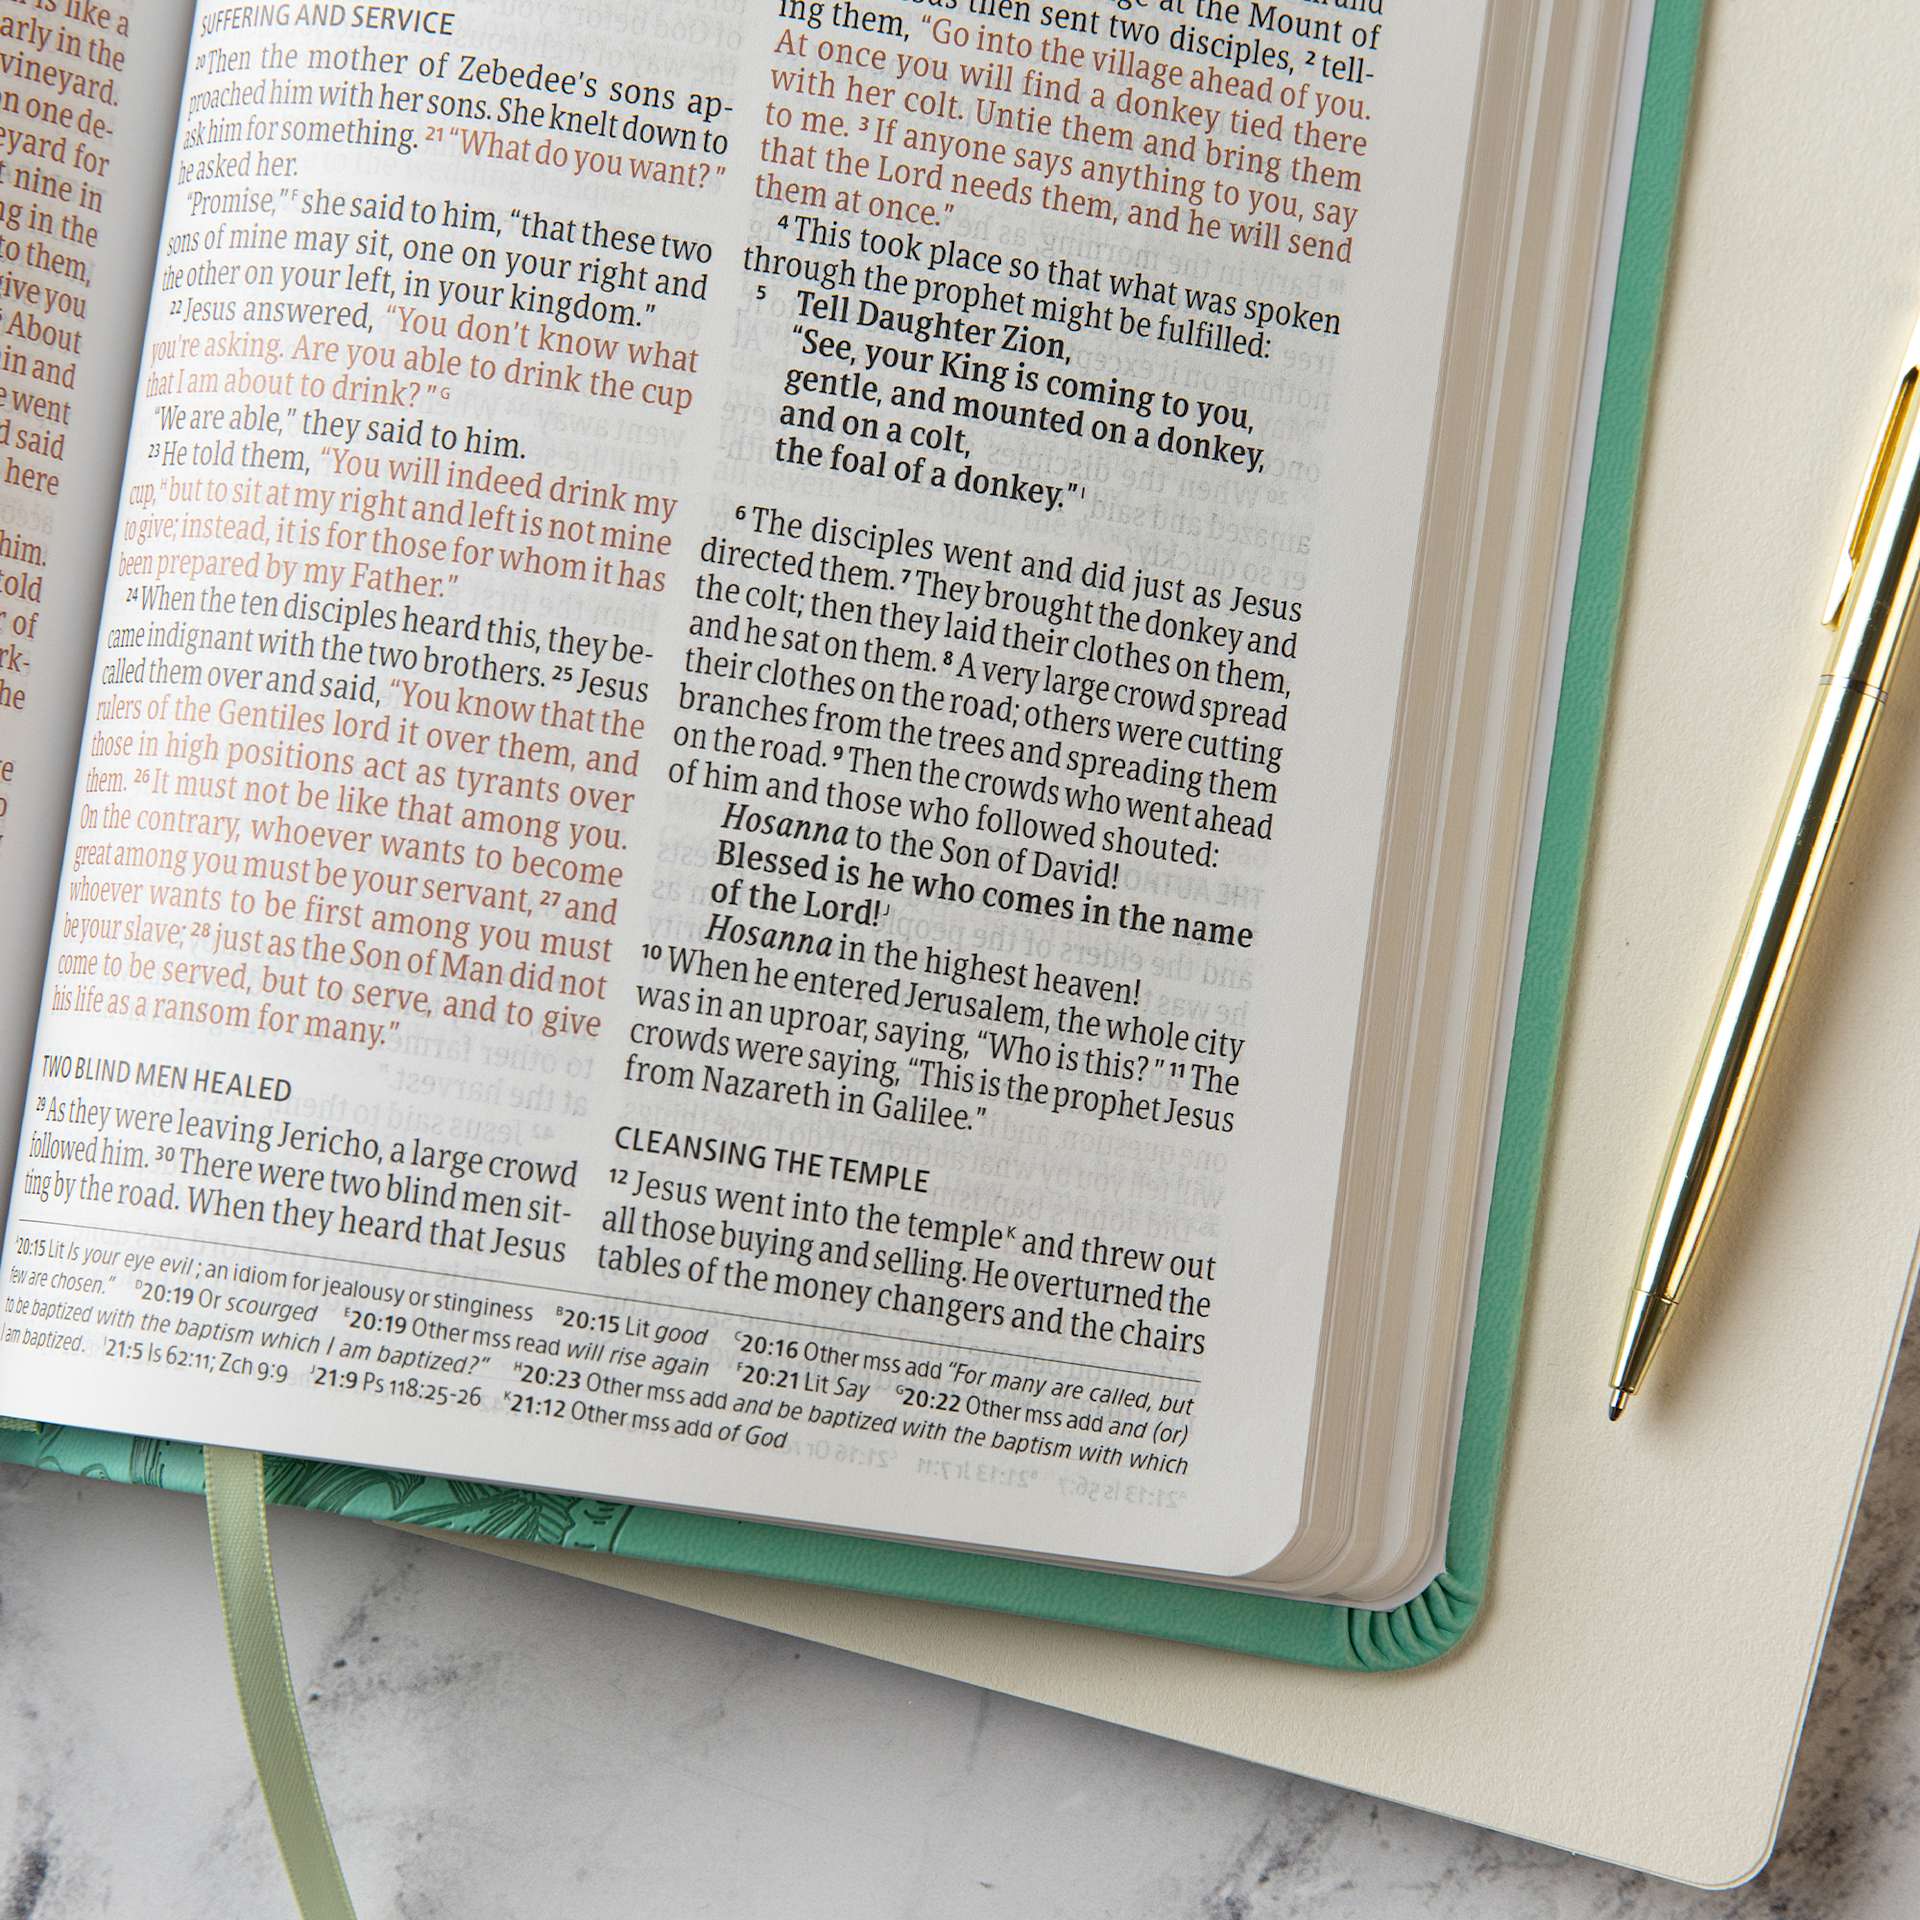 is like a
arly in the
vineyard.
on one de-
eyard for
t nine in
ng in the
to them,
give you
About
in and
e went
d said
here
him.
told
r of
rk-
he
SUFFERING AND SERVICE
20 Then the mother of Zebedee's sons ap-
proached him with her sons. She knelt down to
ask him for something. 21 “What do you want?”
he asked her.
“Promise,”F she said to him, “that these two
sons of mine may sit, one on your right and
the other on your left, in your kingdom.”
22 Jesus answered, “You don't know what
you're asking. Are you able to drink the cup
that I am about to drink?”G
“We are able,” they said to him.
23 He told them, “You will indeed drink my
cup,H but to sit at my right and left is not mine
to give; instead, it is for those for whom it has
been prepared by my Father.”
24 When the ten disciples heard this, they be-
came indignant with the two brothers. 25 Jesus
called them over and said, “You know that the
rulers of the Gentiles lord it over them, and
those in high positions act as tyrants over
them. 26 It must not be like that among you.
On the contrary, whoever wants to become
great among you must be your servant, 27 and
whoever wants to be first among you must
be your slave; 28 just as the Son of Man did not
come to be served, but to serve, and to give
his life as a ransom for many.”
TWO BLIND MEN HEALED
29 As they were leaving Jericho, a large crowd
followed him. 30 There were two blind men sit-
ting by the road. When they heard that Jesus
at the Mount of
then sent two disciples, 2 tell-
ing them, “Go into the village ahead of you.
At once you will find a donkey tied there
with her colt. Untie them and bring them
to me. 3 If anyone says anything to you, say
that the Lord needs them, and he will send
them at once.”
4 This took place so that what was spoken
through the prophet might be fulfilled:
5 Tell Daughter Zion,
“See, your King is coming to you,
gentle, and mounted on a donkey,
and on a colt,
the foal of a donkey.”I
6 The disciples went and did just as Jesus
directed them. 7 They brought the donkey and
the colt; then they laid their clothes on them,
and he sat on them. 8 A very large crowd spread
their clothes on the road; others were cutting
branches from the trees and spreading them
on the road. 9 Then the crowds who went ahead
of him and those who followed shouted:
Hosanna to the Son of David!
Blessed is he who comes in the name
of the Lord!J
Hosanna in the highest heaven!
10 When he entered Jerusalem, the whole city
was in an uproar, saying, “Who is this?” 11 The
crowds were saying, “This is the prophet Jesus
from Nazareth in Galilee.”
CLEANSING THE TEMPLE
12 Jesus went into the templeK and threw out
all those buying and selling. He overturned the
tables of the money changers and the chairs
20:15 Lit Is your eye evil; an idiom for jealousy or stinginess B20:15 Lit good C20:16 Other mss add “For many are called, but
few are chosen.” D20:19 Or scourged E20:19 Other mss read will rise again F20:21 Lit Say G20:22 Other mss add and (or)
to be baptized with the baptism which I am baptized?” H20:23 Other mss add and be baptized with the baptism with which
I am baptized. I21:5 Is 62:11; Zch 9:9 J21:9 Ps 118:25-26 K21:12 Other mss add of God